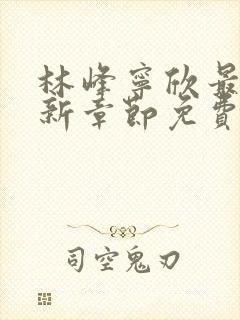 林峰寧欣最
新章節免費
司空鬼刃